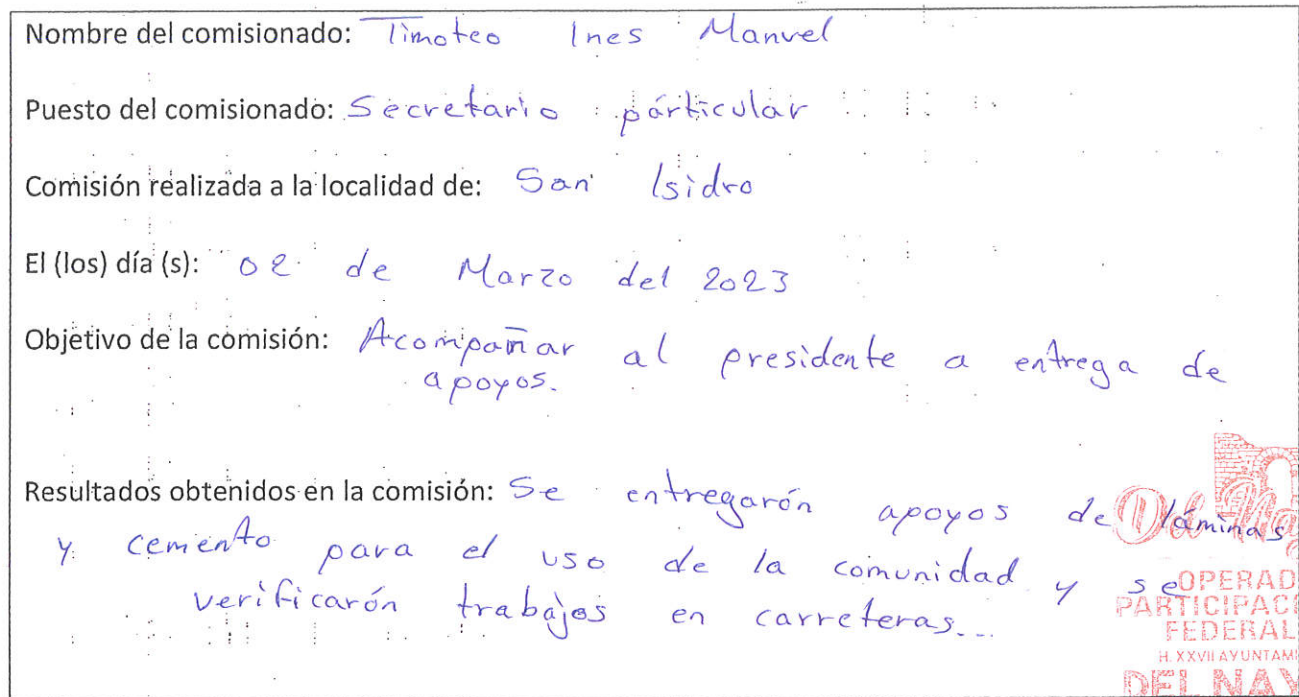 Nombre del comisionado: Timoteo Ines Manuel
Puesto del comisionado: Secretario párticular
Comisión realizada a la localidad de: San Isidro
El (los) día (s): 02 de Marzo del 2023
Objetivo de la comisión: Acompañar al presidente a entrega de
apoyos.
Resultados obtenidos en la comisión: Se entregarón apoyos de láminas
y cemento para el uso de la comunidad y se
verificarón trabajos en carreteras...
OPERAD
PARTICIPAC
FEDERAL
H. XXVII AYUNTAMI
DEL NAY